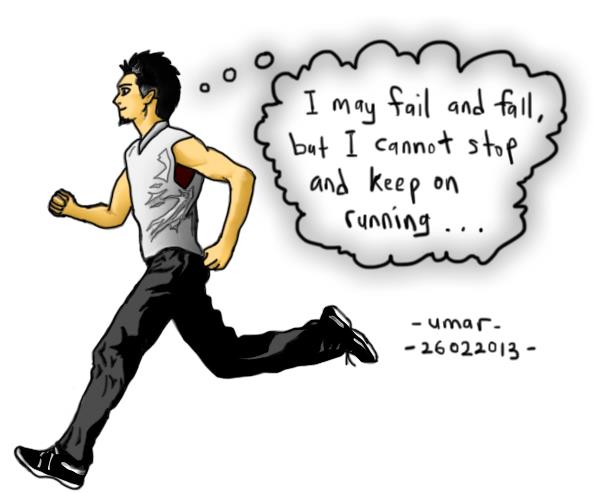 I may fail and fall,
but I cannot stop
and keep on
running...
-umar-
-26022013-